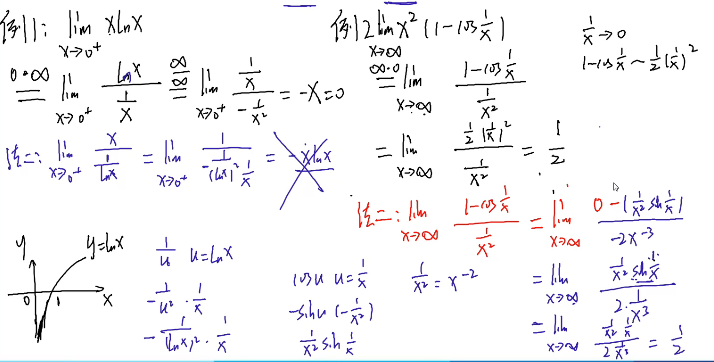 例1: lim x→0⁺ xlnx
0·∞ = lim x→0⁺ lnx / (1/x) ∞/∞ = lim x→0⁺ (1/x) / (-1/x²) = -x = 0
法二: lim x→0⁺ x / (1/lnx) = lim x→0⁺ 1 / (-1/(lnx)² · 1/x) = -xlnx
y
y=lnx
0 1 x
1/u u=lnx
-1/u² · 1/x
-1/(lnx)² · 1/x
例2 lim x→∞ x²(1-cos 1/x)
1/x→0
1-cos 1/x ~ 1/2 (1/x)²
∞·0 = lim x→∞ (1-cos 1/x) / (1/x²)
= lim x→∞ (1/2 (1/x)²) / (1/x²) = 1/2
法二: lim x→∞ (1-cos 1/x) / (1/x²) = lim x→∞ (0-(1/x² sin 1/x)) / (-2x⁻³)
cosu u=1/x
-sinu (-1/x²)
1/x² sin 1/x
1/x² = x⁻²
= lim x→∞ (1/x² sin 1/x) / (2·1/x³)
= lim x→∞ (1/x² · 1/x) / (2 1/x³) = 1/2